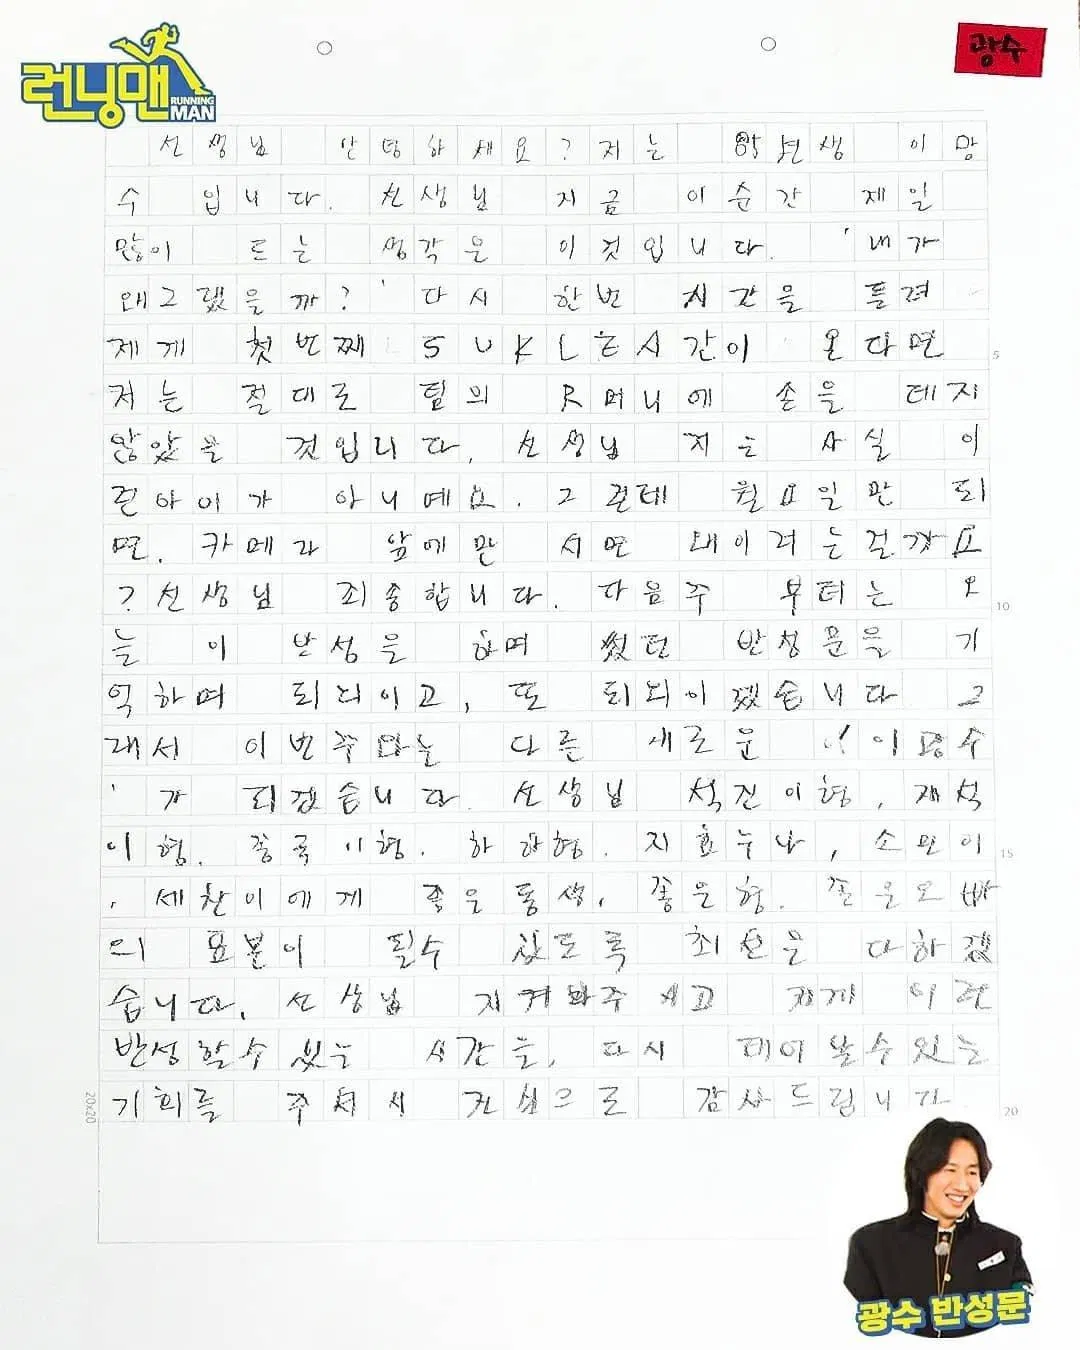 런닝맨
RUNNING MAN
광수
선생님 안녕하세요? 저는 85년생 이광
수 입니다. 선생님 지금 이순간 제일
많이 드는 생각은 이것입니다. '내가
왜그랬을까?' 다시 한번 시간을 돌려
제게 첫번째 시간이 온다면
저는 절대로 팀의 머니에 손을 데지
않았을 것입니다. 선생님 저는 사실 이
런아이가 아니예요. 그런데 월요일만 되
면. 카메라 앞에만 서면 왜이러는걸까요
? 선생님 죄송합니다. 다음주 부터는 오
늘 이 반성을 하며 썼던 반성문을 기
억하며 되뇌이고, 또 되뇌이겠습니다 그
래서 이번주와는 다른 새로운 '이광수
' 가 되겠습니다. 선생님 석진이형, 재석
이형. 종국이형. 하하형. 지효누나, 소민이
, 세찬이에게 좋은동생, 좋은형. 좋은오빠
의 표본이 될수 있도록 최선을 다하겠
습니다. 선생님 지켜봐주시고 저에게 이런
반성할수 있는 시간을, 다시 태어날수있는
기회를 주셔서 진심으로 감사드립니다
5
10
15
20
20x20
광수 반성문